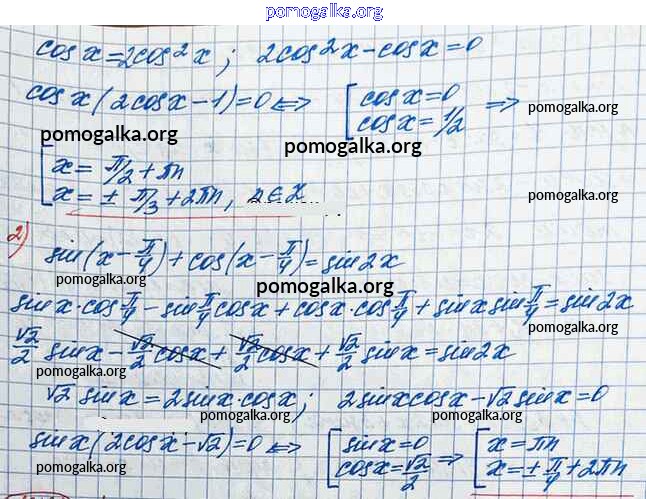 pomogalka.org
cos x = 2cos² x ; 2cos² x - cos x = 0
cos x (2cos x - 1) = 0 <=> [ cos x = 0 =>
cos x = 1/2
pomogalka.org
pomogalka.org
pomogalka.org
[ x = π/2 + πn
x = ± π/3 + 2πn, n ∈ Z
pomogalka.org
2)
sin(x - π/4) + cos(x - π/4) = sin 2x
pomogalka.org
pomogalka.org
sin x · cos π/4 - sin π/4 cos x + cos x · cos π/4 + sin x sin π/4 = sin 2x
√2/2 sin x - √2/2 cos x + √2/2 cos x + √2/2 sin x = sin 2x
pomogalka.org
pomogalka.org
√2 sin x = 2 sin x · cos x ; 2 sin x cos x - √2 sin x = 0
pomogalka.org
pomogalka.org
sin x (2cos x - √2) = 0 <=> [ sin x = 0 => [ x = πn
cos x = √2/2 x = ± π/4 + 2πn